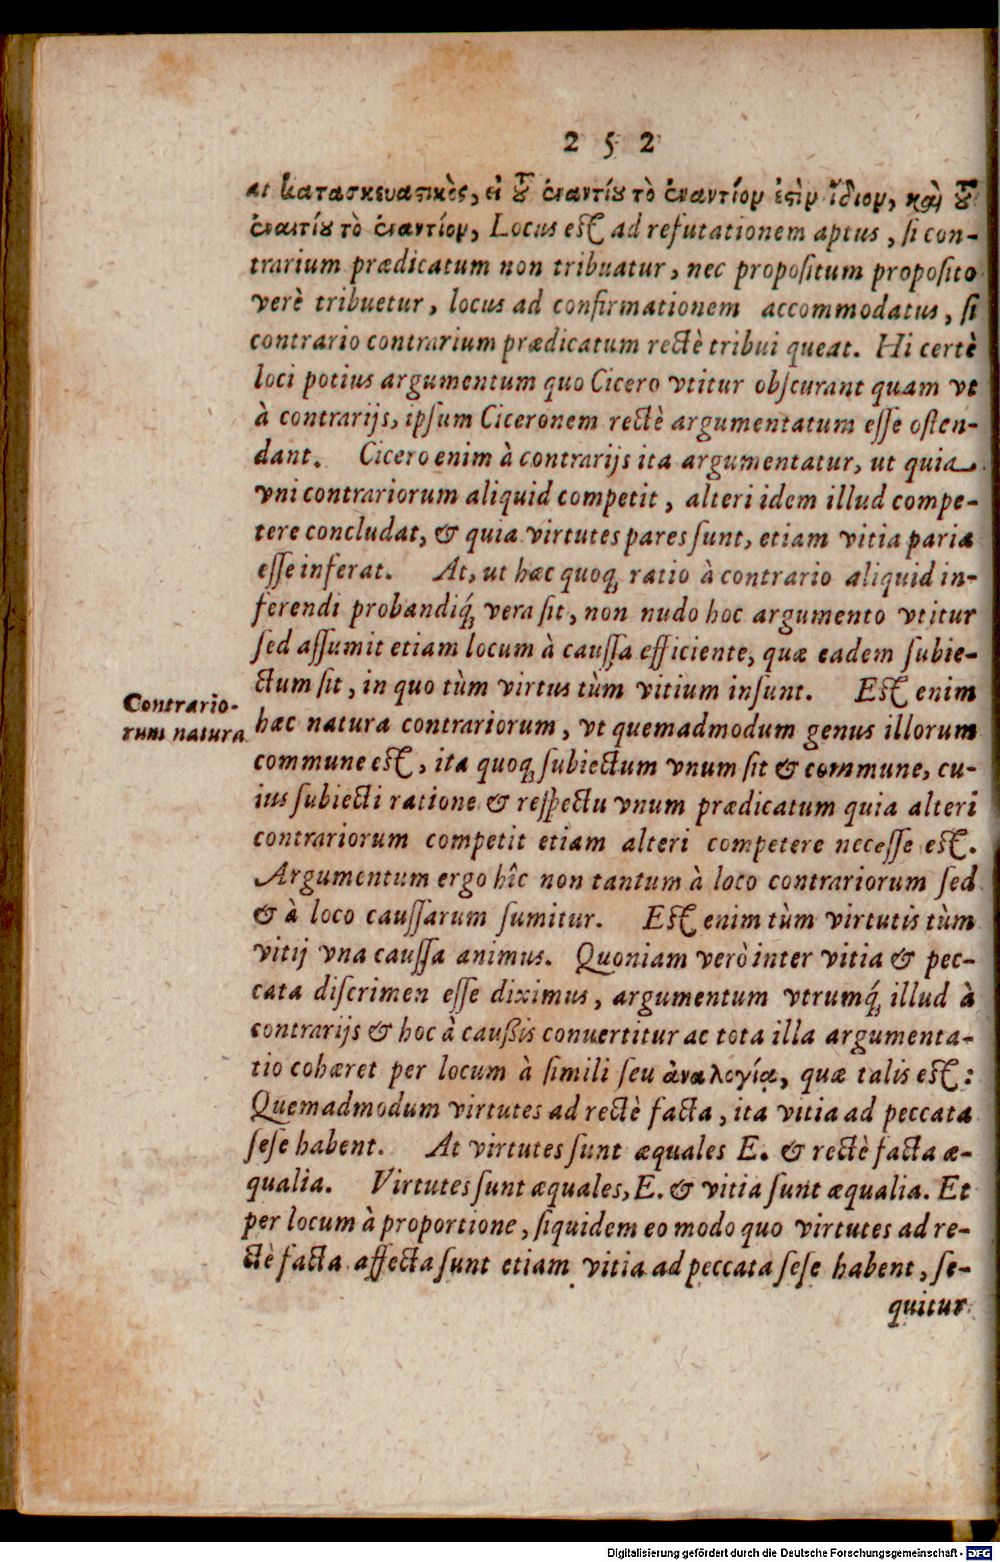 252
at κατασκευαστικὸς, εἰ τοῦ ἐναντίου τὸ ἐναντίον ἐστὶν ἴδιον, καὶ τοῦ
ἐναντίου τὸ ἐναντίον, Locus est ad refutationem aptus, si con-
trarium prædicatum non tribuatur, nec propositum proposito
verè tribuetur, locus ad confirmationem accommodatus, si
contrario contrarium prædicatum rectè tribui queat. Hi certè
loci potius argumentum quo Cicero vtitur obscurant quam vt
à contrarijs, ipsum Ciceronem rectè argumentatum esse osten-
dant. Cicero enim à contrarijs ita argumentatur, ut quia
vni contrariorum aliquid competit, alteri idem illud compe-
tere concludat, & quia virtutes pares sunt, etiam vitia paria
esse inferat. At, ut hæc quoq; ratio à contrario aliquid in-
ferendi probandiq́; vera sit, non nudo hoc argumento vtitur
sed assumit etiam locum à caussa efficiente, quæ eadem subie-
ctum sit, in quo tùm virtus tùm vitium insunt. Est enim
Contrario-
rum natura
hæc natura contrariorum, vt quemadmodum genus illorum
commune est, ita quoq; subiectum vnum sit & commune, cu-
ius subiecti ratione & respectu vnum prædicatum quia alteri
contrariorum competit etiam alteri competere necesse est.
Argumentum ergo hîc non tantum à loco contrariorum sed
& à loco caussarum sumitur. Est enim tùm virtutis tùm
vitij vna caussa animus. Quoniam verò inter vitia & pec-
cata discrimen esse diximus, argumentum vtrumq́; illud à
contrarijs & hoc à caußis conuertitur ac tota illa argumenta-
tio cohæret per locum à simili seu ἀναλογίᾳ, quæ talis est:
Quemadmodum virtutes ad rectè facta, ita vitia ad peccata
sese habent. At virtutes sunt æquales E. & rectè facta æ-
qualia. Virtutes sunt æquales, E. & vitia sunt æqualia. Et
per locum à proportione, siquidem eo modo quo virtutes ad re-
ctè facta affecta sunt etiam vitia ad peccata sese habent, se-
quitur
Digitalisierung gefördert durch die Deutsche Forschungsgemeinschaft - DFG